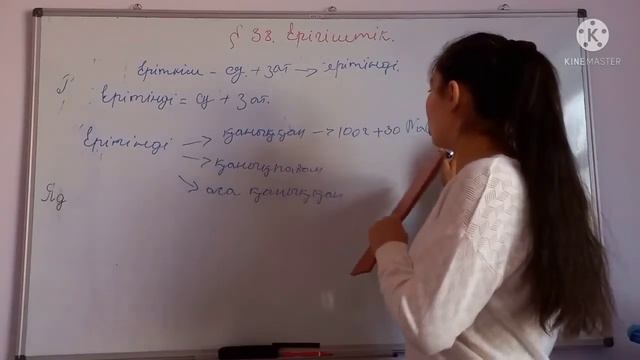 § 38. Ерігіштік.
Еріткіш - су + зат → ерітінді.
Ерітінді = су + зат.
Ерітінді → қаныққан → 100г + 30 Na
→ қанықпаған
→ аса қаныққан
KINEMASTER